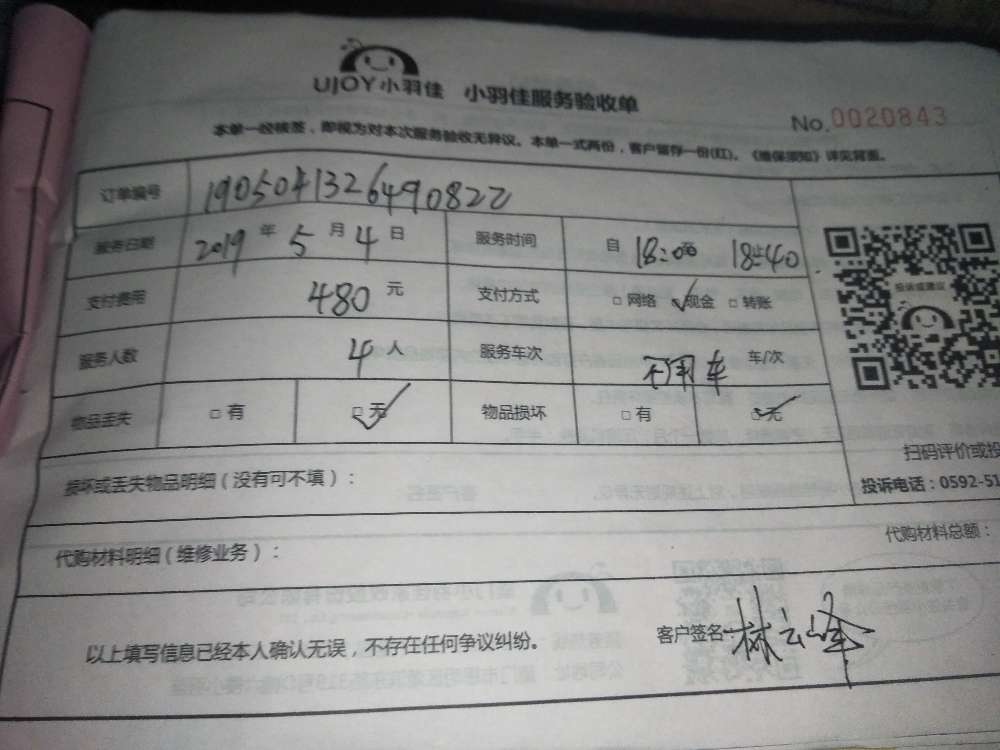 UJOY小羽佳 小羽佳服务验收单
No.0020843
本单一经核签，即视为对本次服务验收无异议。本单一式两份，客户留存一份(红)。《维保须知》详见背面。
订单编号 19050413264908222
服务日期 2019 年 5 月 4 日 服务时间 自 18:00 18:40
支付费用 480 元 支付方式 □网络 ✓现金 □转账
服务人数 4 人 服务车次 不用车 车/次
物品丢失 □有 ☑无 物品损坏 □有 ☑无
投诉或建议
扫码评价或投
投诉电话：0592-51
损坏或丢失物品明细（没有可不填）：
代购材料明细（维修业务）： 代购材料总额：
以上填写信息已经本人确认无误，不存在任何争议纠纷。 客户签名：林云峰